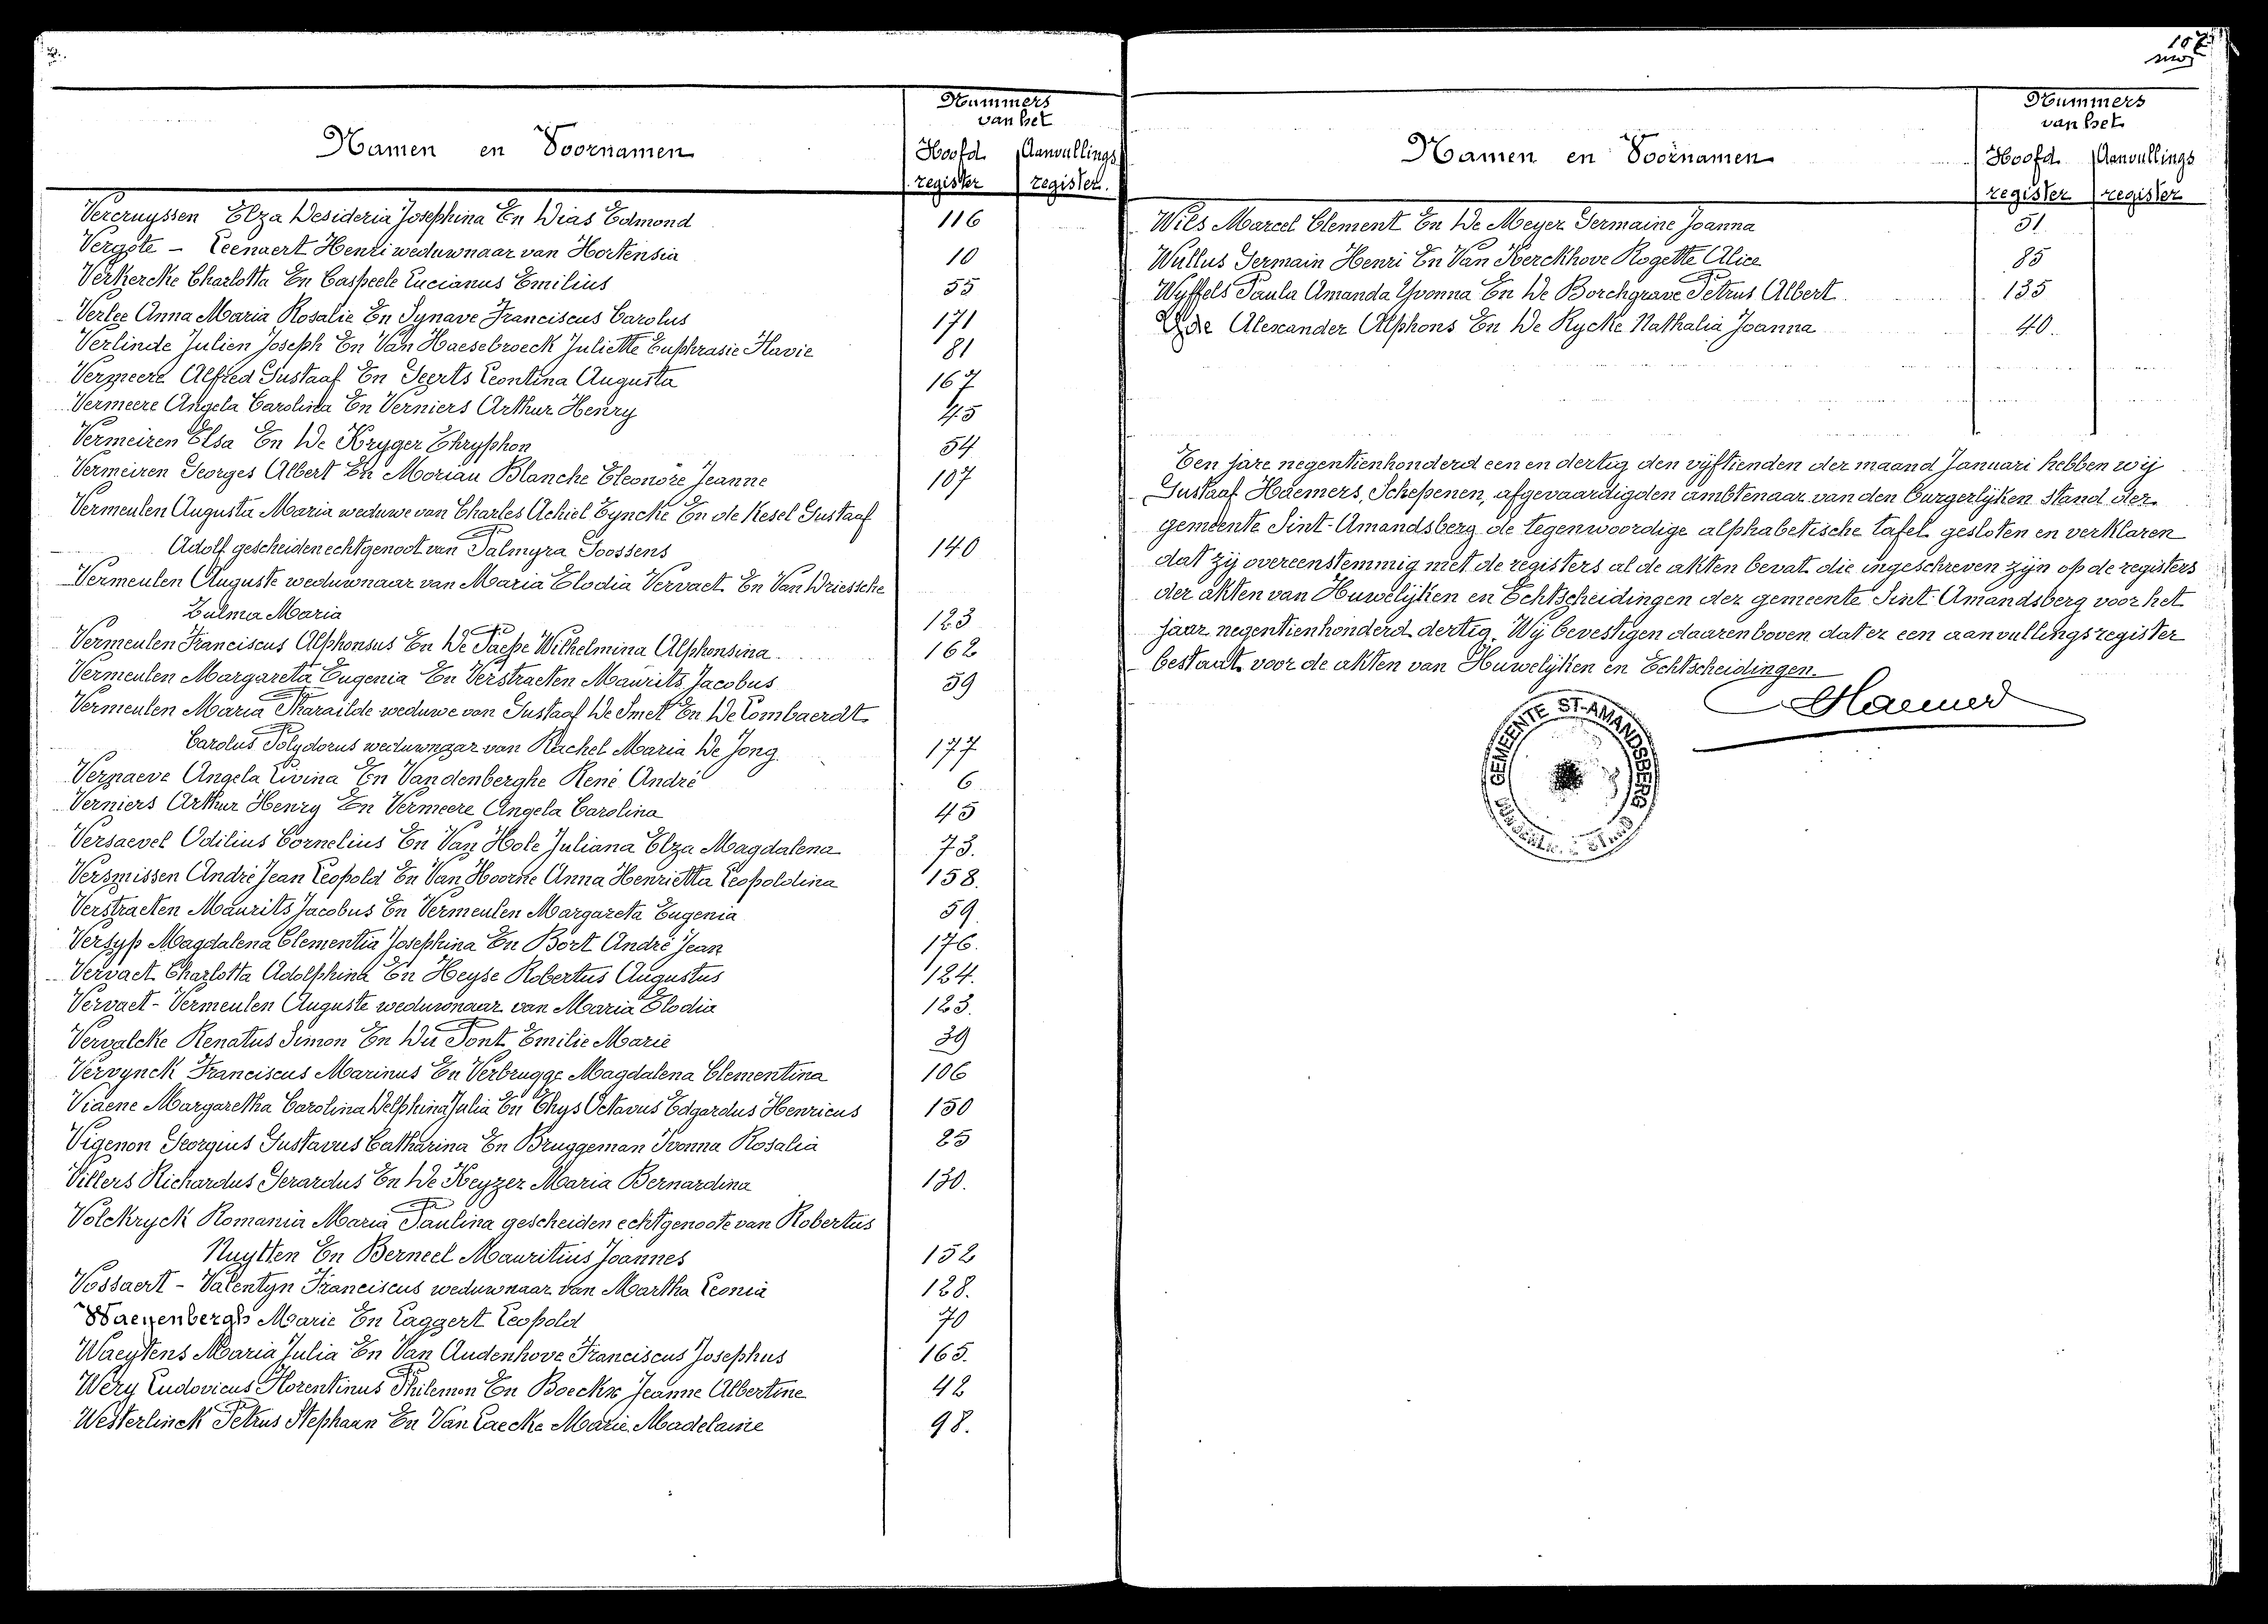 107
Nummers
van het
Namen en Voornamen
Hoofd Aanvullings
register register.
Vercruyssen Elza Desideria Josephina En Dias Edmond 116
Vergote - Leenaert Henri weduwnaar van Hortensia 10
Verkercke Charlotta En Caspeele Lucianus Emilius 55
Verlee Anna Maria Rosalie En Synave Franciscus Carolus 171
Verlinde Julien Joseph En Van Haesebroeck Juliette Euphrasie Flavie 81
Vermeere Alfred Gustaaf En Geerts Leontina Augusta 167
Vermeere Angela Carolina En Verniers Arthur Henry 45
Vermeiren Elsa En De Kryger Chryphon 54
Vermeiren Georges Albert En Moriau Blanche Eleonore Jeanne 107
Vermeulen Augusta Maria weduwe van Charles Achiel Eyncke En de Kesel Gustaaf
Adolf gescheiden echtgenoot van Palmyra Goossens 140
Vermeulen Auguste weduwnaar van Maria Elodia Vervaet En Van Driessche
Zulma Maria 123
Vermeulen Franciscus Alphonsus En De Paepe Wilhelmina Alphonsina 162
Vermeulen Margareta Eugenia En Verstraeten Maurits Jacobus 59
Vermeulen Maria Pharaïlde weduwe van Gustaaf De Smet En De Lombaerdt
Carolus Polydorus weduwnaar van Rachel Maria De Jong 177
Vernaeve Angela Livina En Vandenberghe René André 6
Verniers Arthur Henry En Vermeere Angela Carolina 45
Versaevel Odilius Cornelius En Van Hole Juliana Elza Magdalena 73.
Versmissen André Jean Leopold En Van Hoorne Anna Henrietta Leopoldina 158.
Verstraeten Maurits Jacobus En Vermeulen Margareta Eugenia 59.
Versyp Magdalena Clementia Josephina En Bort André Jean 176.
Vervaet Charlotta Adolphina En Heyse Robertus Augustus 124.
Vervaet - Vermeulen Auguste weduwnaar van Maria Elodia 123.
Vervalcke Renatus Simon En Du Pont Emilie Marie 39
Vervynck Franciscus Marinus En Verbrugge Magdalena Clementina 106
Viaene Margaretha Carolina Delphina Julia En Thys Octavus Edgardus Henricus 150
Vigenon Georgius Gustavus Catharina En Bruggeman Ivonna Rosalia 25
Villers Richardus Gerardus En De Keyzer Maria Bernardina 130.
Volckryck Romania Maria Paulina gescheiden echtgenoote van Robertus
Nuytten En Berneel Mauritius Joannes 152
Vossaert - Valentyn Franciscus weduwnaar van Martha Leonia 128.
Waeyenbergh Marie En Laggert Leopold 70
Waeytens Maria Julia En Van Audenhove Franciscus Josephus 165.
Wery Ludovicus Florentinus Philemon En Boeckx Jeanne Albertine 42
Westerlinck Petrus Stephaan En Van Laecke Marie Madelaine 98.
Nummers
van het
Namen en Voornamen
Hoofd Aanvullings
register register
Wils Marcel Clement En De Meyer Germaine Joanna 51
Wullus Germain Henri En Van Kerckhove Rogette Alice 85
Wyffels Paula Amanda Yvonna En De Borchgrave Petrus Albert 135
Yde Alexander Alphons En De Rycke Nathalia Joanna 40.
Ten jare negentienhonderd een en dertig den vijftienden der maand Januari hebben wij
Gustaaf Haemers, Schepenen, afgevaardigden ambtenaar van den burgerlijken stand der
gemeente Sint-Amandsberg de tegenwoordige alphabetische tafel gesloten en verklaren
dat zij overeenstemmig met de registers al de akten bevat die ingeschreven zijn op de registers
der akten van Huwelijken en Echtscheidingen der gemeente Sint Amandsberg voor het
jaar negentienhonderd dertig. Wij bevestigen daarenboven dat er een aanvullingsregister
bestaat voor de akten van Huwelijken en Echtscheidingen.
Haemers
GEMEENTE ST-AMANDSBERG